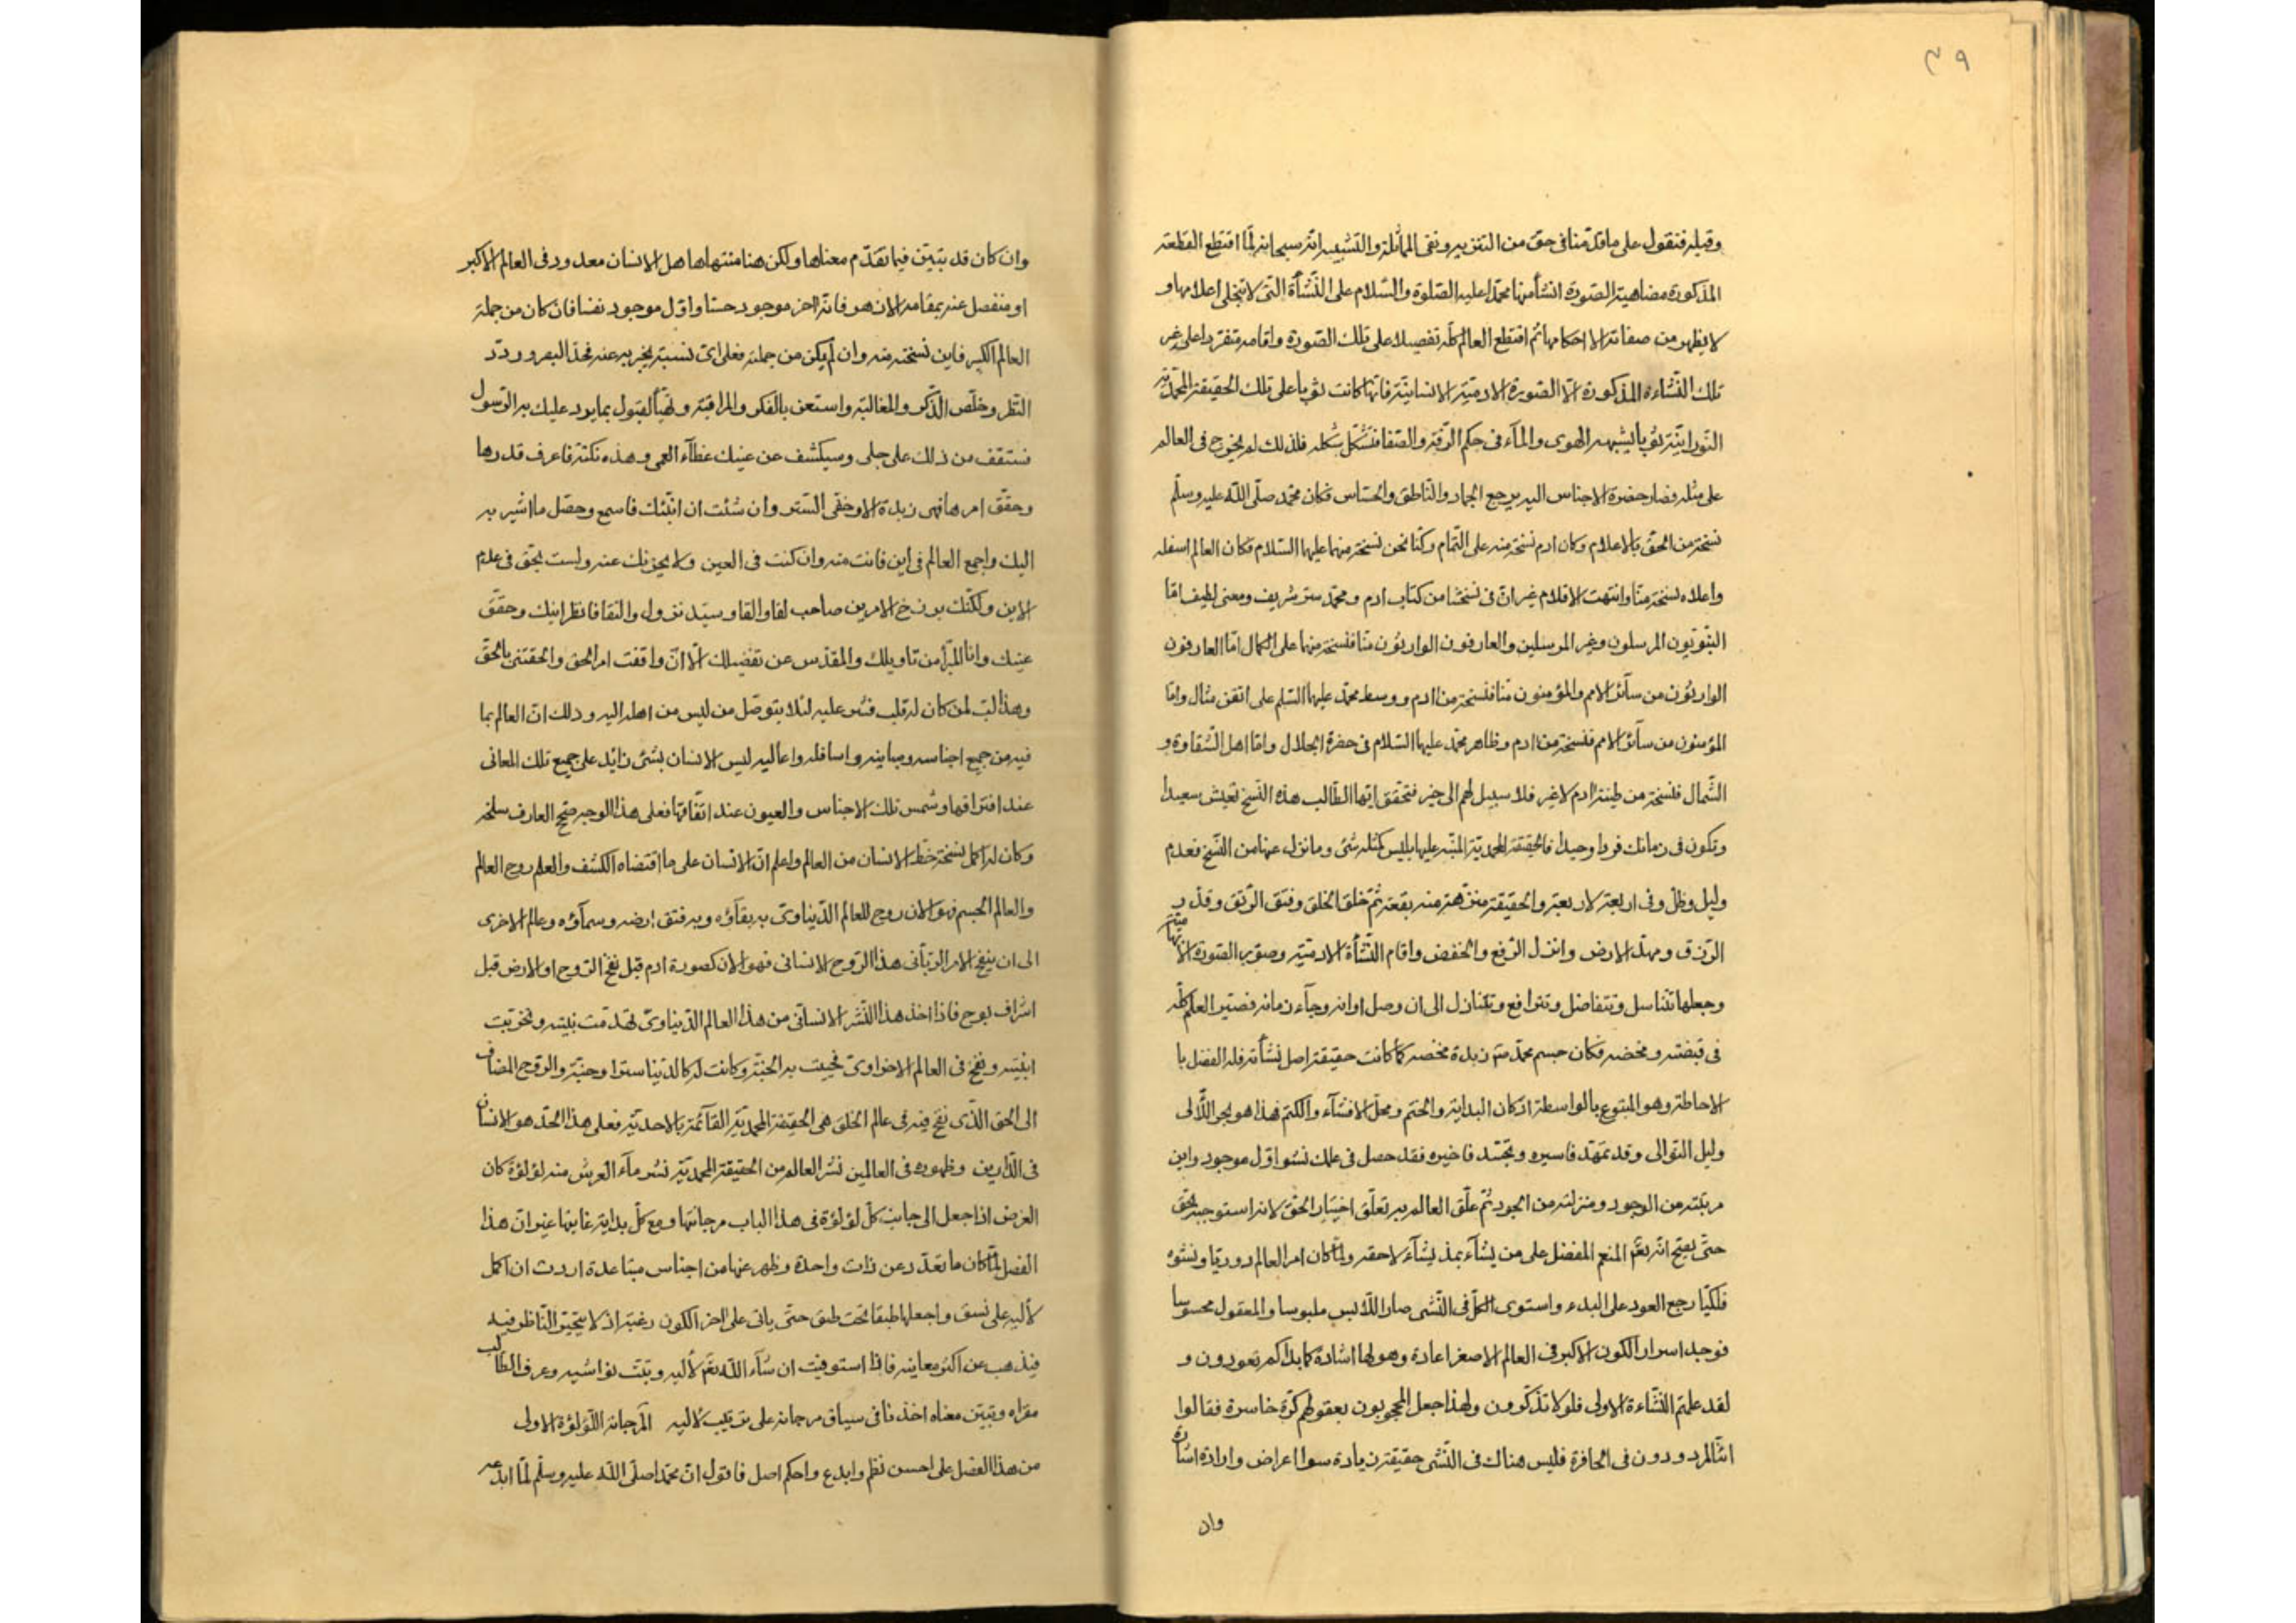 ٤٩
وقبله فنقول على ما قدّمنا فى حقّ من التنزيه ونفى المماثلة والتشبيه انّه سبحانه لمّا اقتطع القطعة
المذكورة مضاهية الصّورة انشأ منها محمّدا عليه الصّلوة والسّلام على النّشأة التّى لا تنجلى اعلامها و
لا يظهر من صفاته الا احكامها ثم اقتطع العالم كلّه تفصيلا على تلك الصّورة واقامه متفرّدا على غير
تلك النّشاءة المذكورة الّا الصّورة الادميّة الانسانيّة فانّها كانت ثوبا على تلك الحقيقة المحمّديّة
النّورانيّة ثوبا يشبه الهوى والمآء فى حكم الرّقة والصّفا فتشكّل بشكله فلذلك لم يخرج فى العالم
على مثله فصار حضرة الاجناس اليه يرجع الجماد والنّاطق والحسّاس فكان محمّد صلّى اللّه عليه وسلّم
نسخة من الحقّ بالاعلام وكان ادم نسخة منه على التّمام وكنّا نحن نسخة منهما عليهما السّلام فكان العالم اسفله
واعلاه نسخة منّا وانتهت الاقلام غير انّ فى نسختنا من كتاب ادم ومحمّد سرّ شريف ومعنى لطيف امّا
النّبوّيون المرسلون وغير المرسلين والعارفون الوارثون منّا فنسخة منهما على الكمال امّا العارفون
الوارثون من سآئر الامم والمؤمنون منّا فنسخة من ادم ووسط محمّد عليهما السّلم على اتقن مثال وامّا
المؤمنون من سآئر الامم فنسخة من ادم وظاهر محمّد عليهما السّلام فى حضرة الجلال وامّا اهل الشّقاوة و
الشّمال فنسخة من طينة ادم لا غير فلا سبيل لهم الى خير فتحقق ايّها الطّالب هذه النّسخ تعيش سعيدا
وتكون فى زمانك فردا وحيدا فالحقيقة المحمديّة المنبّه عليها بليس كمثله شئ وما نزل عنها من النّسخ فعدم
وليل وظلّ وفى اربعة لاربعة والحقيقة منزّهة منه بقعة ثمّ خلق الخلق وفتق الرّتق وقدّر
الرّزق ومهّد الارض وانزل الرّفع والخفض واقام النّشأة الادميّة وصوّر الصّورة الابهاميّة
وجعلها تتناسل وتتفاضل وتترافع وتتنازل الى ان وصل اوانه وجآء زمانه فصيّر العالم كلّه
فى قبضته ومخضه فكان جسم محمّد زبدة مخضه كما كانت حقيقة اصل نشأته فله الفضل با
لاحاطة وهو المتبوع بالواسطة اذ كان البداية والختم ومحلّ الافشآء والكتم فهذا هو بحر اللّآلى
وليل التوالى وقد تمهّد فاسيره وتجسّد فاخبره فقد حصل فى علمك نشو اوّل موجود واين
مرتبته من الوجود ومنزلته من الجود ثمّ علّق العالم به تعلّق اختيار الحقّ لا انّه استوجبه بحقّ
حتّى يصحّ انّه نعم المنعم المفضل على من يشآء بمذ يشآء لاحقه ولمّا كان امر العالم دوريّا ونشوه
فلكيّا رجع العود على البدء واستوى الكلّ فى النّشى صار اللّابس ملبوسا والمعقول محسوسا
فوجد اسرار الكون الاكبر فى العالم الاصغر اعادة وهو لها اشادة كما بداكم تعودون و
لقد علمتم النّشاءة الاولى فلولا تذكّرون ولهذا جعل المحجوبون بعقولهم كرّة خاسرة فقالوا
انّا لمردودون فى الحافرة فليس هناك فى النّشى حقيقة زيادة سوا اعراض وارادة اشارة
وان
وان كان قد تبيّن فيما تقدّم معناها ولكن هنا منتهاها هل الانسان معدود فى العالم الاكبر
او منفصل عنه بمقامه الان هو فانّه اخر موجود حسّا واوّل موجود نفسا فان كان من جملة
العالم الكبير فاين نسخته منه وان لم يكن من جملته فعلى اىّ نسبة يخبر به عنه فحدّ البصر وردّد
النّظر وخلّص الذّكر والمغالبة واستعن بالفكر والمراقبة وتهيّأ لقبول بما يرد عليك به الرّسول
فستقف من ذلك على جلى وسيكشف عن عينيك غطآء العمى وهذه نكتة فاعرف قدرها
وحقّق امرها فهى زبدة الاوخفى السّتر وان شئت ان انبّئك فاسمع وحصّل ما اشير به
اليك واجمع العالم فى اين فانت منه وان كنت فى العين ولا يحزنك عنه ولست بحقّ فى عدم
الاين ولكنّك برزخ الامرين صاحب لقا والقا وسيّد نزول والتقا فانظر اينك وحقّق
عينك وانا المبرّأ من تاويلك والمقدّس عن تفضيلك الّا انّ واقفت امر الحقّ والحقتنى بالحقّ
وهذا لبّ لمن كان له قلب فستر عليه لئلا يتوصّل من ليس من اهله اليه وذلك انّ العالم بما
فيه من جميع اجناسه ومباينه واسافله واعاليه ليس الانسان بشئ زائد على جميع تلك المعانى
عند افتراقها وشمس تلك الاجناس والعيون عند اتّفاقها فعلى هذا الوجه صحّ العارف سلخه
وكان له اكمل نسخة خطّ الانسان من العالم واعلم انّ الانسان على ما اقتضاه الكشف والعلم روح العالم
والعالم الجسم فهو الان روح للعالم الدّنياوىّ به بقآؤه وبه فتق ارضه وسمآؤه وعالم الاخرى
الى ان ينفخ الامر الربّانى هذا الرّوح الانسانى فهو الان كصورة ادم قبل نفخ الرّوح او الارض قبل
اشراف يوح فاذا اخذ هذا النّشر الانسانى من هذا العالم الدّنياوىّ تهدّمت بنيته وتخرّبت
ابنيته ونفخ فى العالم الاخراوىّ فحييت به الجنّة وكانت له كالدّنيا سترا وجنّة والرّوح المضاف
الى الحق الذّى نفخ فيه فى عالم الخلق هى الحقيقة المحمّديّة القآئمة بالاحديّة فعلى هذا الحدّ هو الانسان
فى الدّارين وظهوره فى العالمين نشر العالم من الحقيقة المحمّديّة نشو مآء العرش منه لؤلؤة كان
الغرض اذا جعل الى جانب كلّ لؤلؤة فى هذا الباب مرجانتها ومع كلّ بداية غايتها غير انّ هذا
الفصل لمّا كان ما تعدّد عن ذات واحدة وظهر عنها من اجناس متباعدة اردت ان اكمل
لأليه على نسق واجعلها طبقا تحت طبق حتّى ياتى على اخر الكون رغبة اذ لا يتحيّر النّاظر فيه
فيذهب عن اكثر معانيه فاذا استوفيت ان شآء اللّه نعم لأليه وتبّت نواشيه وعرف الطّالب
مغزاه وتبيّن معناه اخذنا فى سياق مرجانه على ترتيب لاليه المرجانة اللّؤلؤة الاولى
من هذا الفصل على احسن نظم وابدع واحكم اصل فاقول انّ محمّدا صلّى اللّه عليه وسلّم لمّا ابدعه